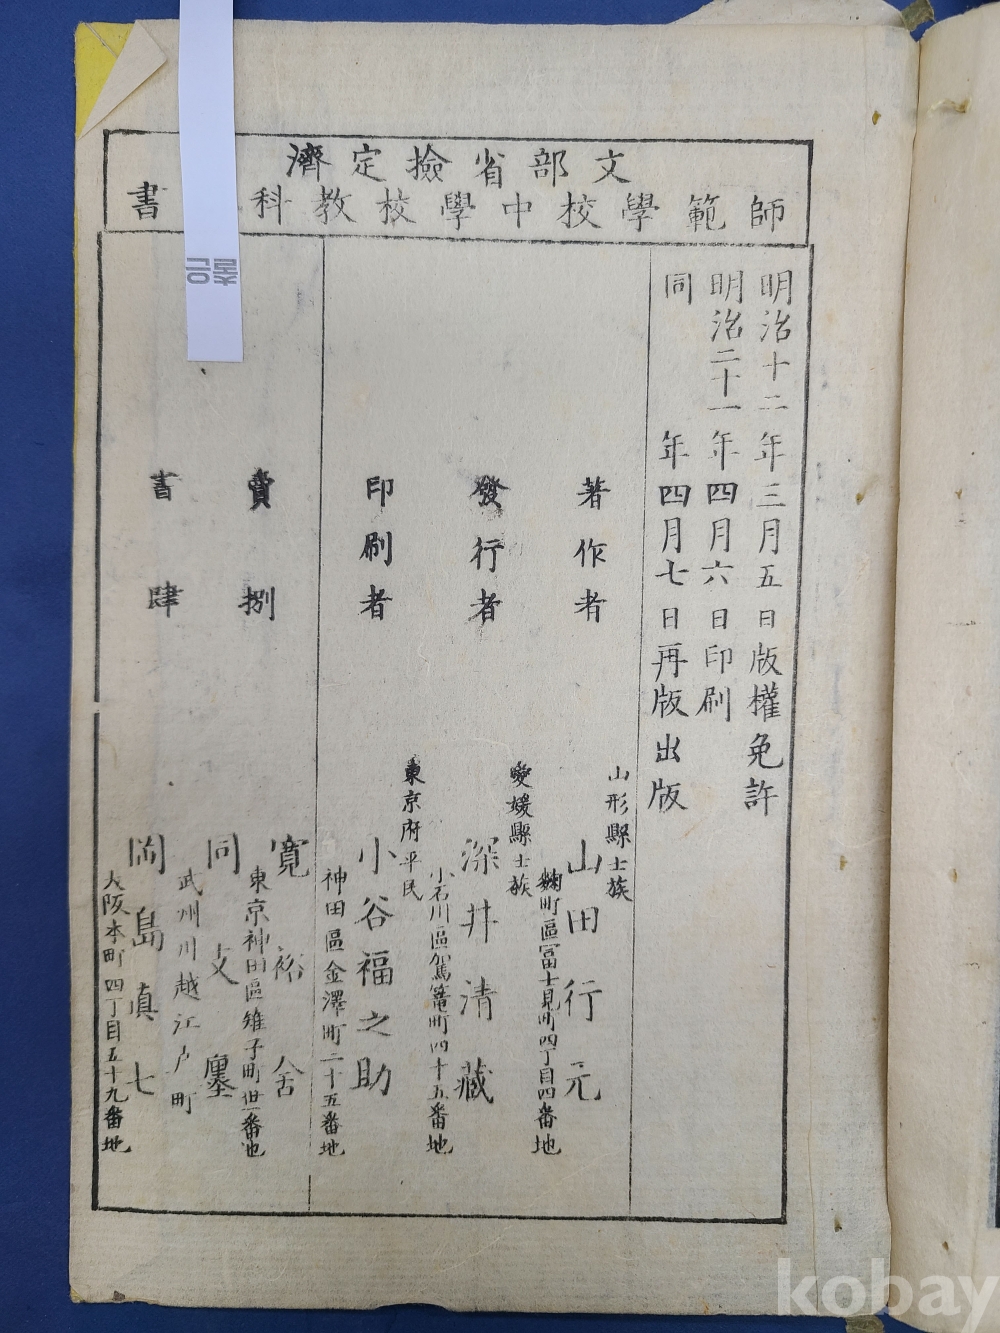 文部省撿定濟
師範學校中學校教科 書
明治十二年三月五日版權免許
明治二十一年四月六日印刷
同 年四月七日再版出版
著作者
山形縣士族
山田行元
麴町區冨士見町四丁目四番地
發行者
愛媛縣士族
深井清藏
小石川區駕籠町四十五番地
印刷者
東京府平民
小谷福之助
神田區金澤町二十五番地
賣捌
書肆
寛裕舍
東京神田區雉子町卅一番地
同支廛
武州川越江戸町
岡島真七
大阪本町四丁目五十九番地
출은
kobay